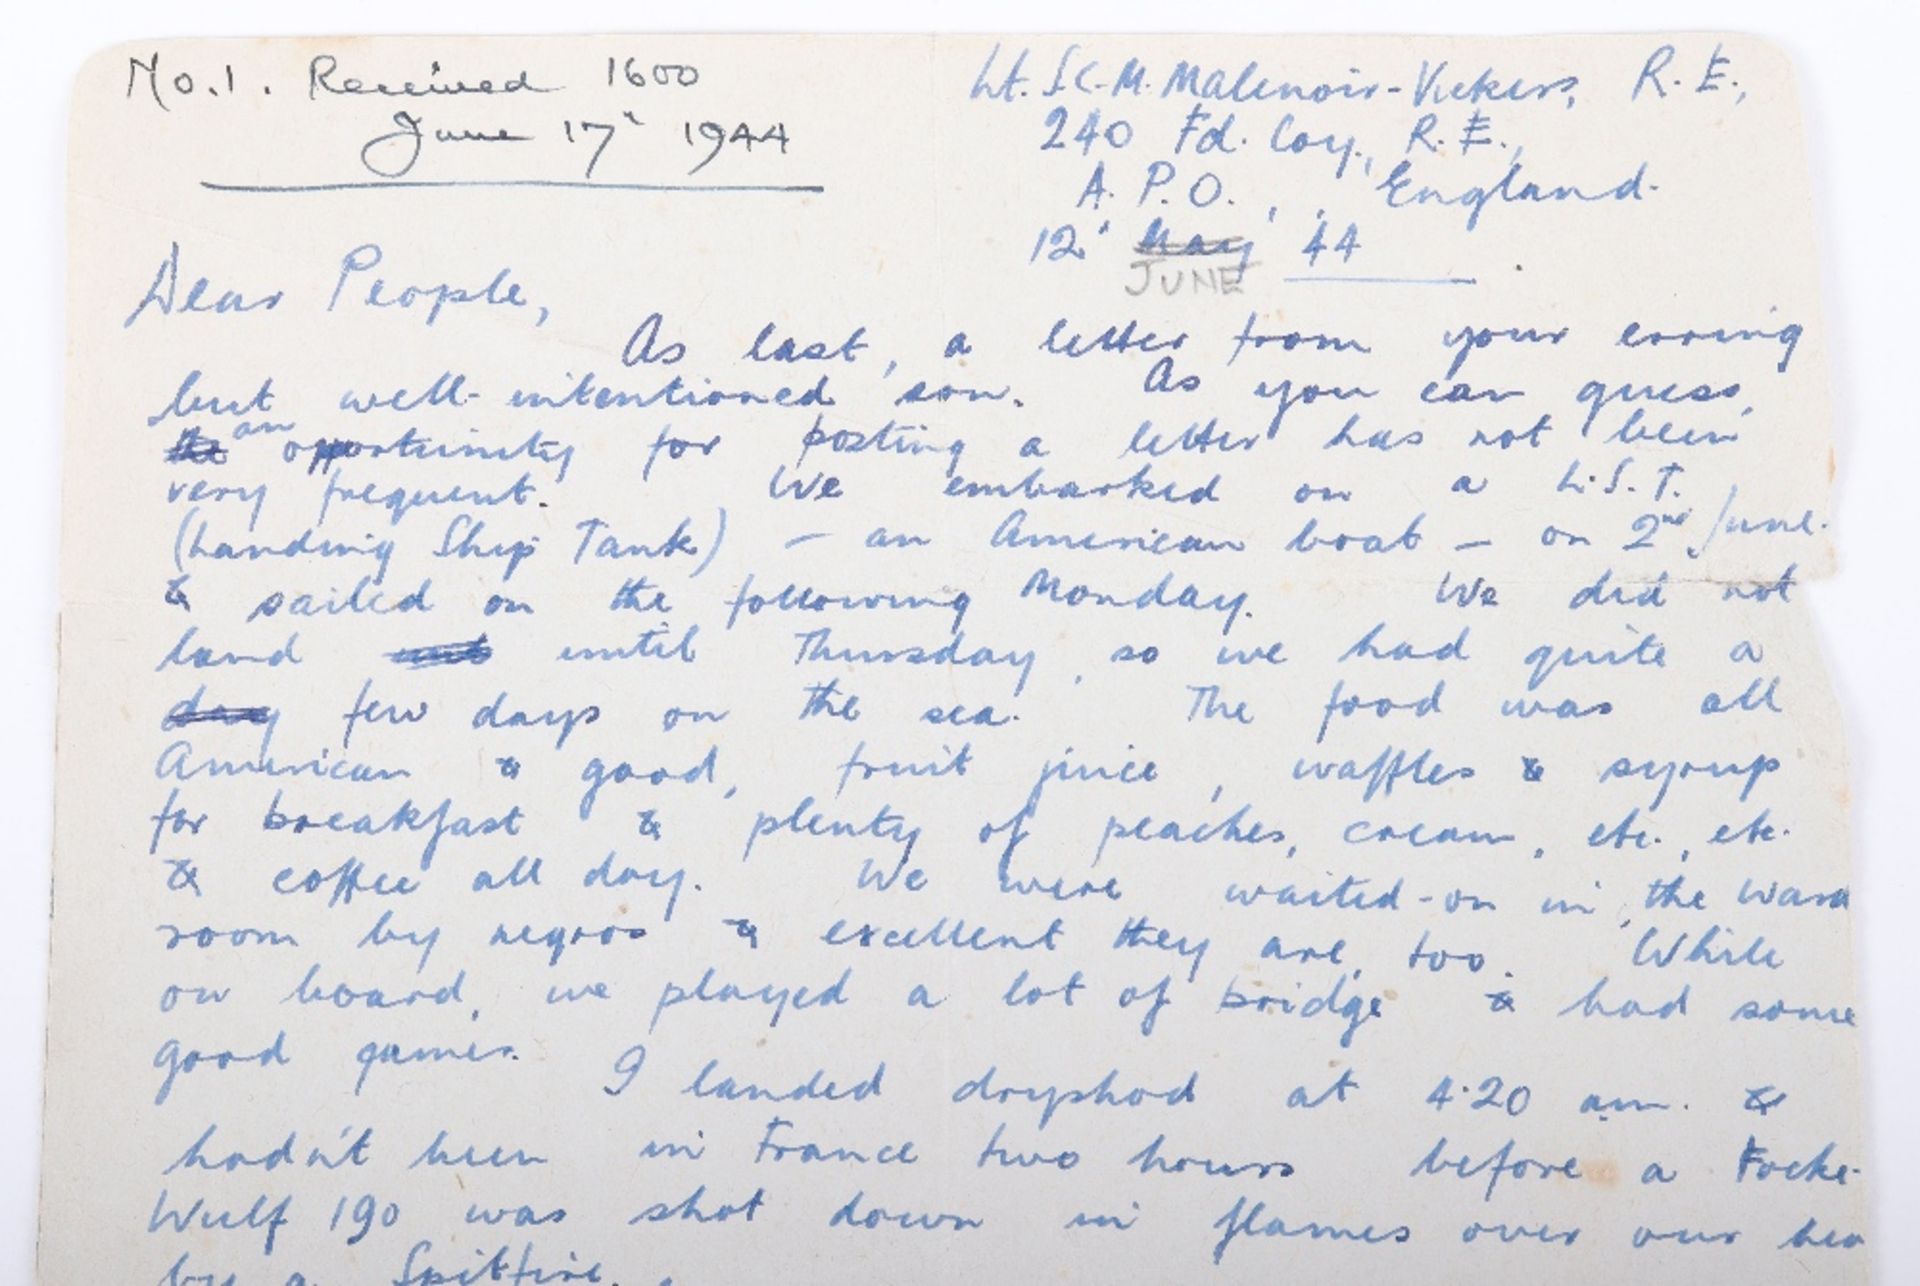 No.1. Received 1600
June 17" 1944
Lt. S.C.M. Malenoir-Vickers, R.E.,
240 Fd. Coy., R.E.,
A.P.O., , England.
12" May 44
JUNE
Dear People,
As last, a letter from your erring
but well-intentioned son. As you can guess,
the an opportunity for posting a letter has not been
very frequent. We embarked on a L.S.T.
(Landing Ship Tank) – an American boat – on 2nd June.
& sailed on the following Monday. We did not
land until Thursday, so we had quite a
day few days on the sea. The food was all
American & good, fruit juice, waffles & syrup
for breakfast & plenty of peaches, cream, etc., etc.
& coffee all day. We were waited-on in the ward
room by negros & excellent they are, too. While
on board, we played a lot of bridge & had some
good games. I landed dryshod at 4.20 am. &
hadn't been in France two hours before a Focke-
Wulf 190 was shot down in flames over our hea
by a Spitfire.